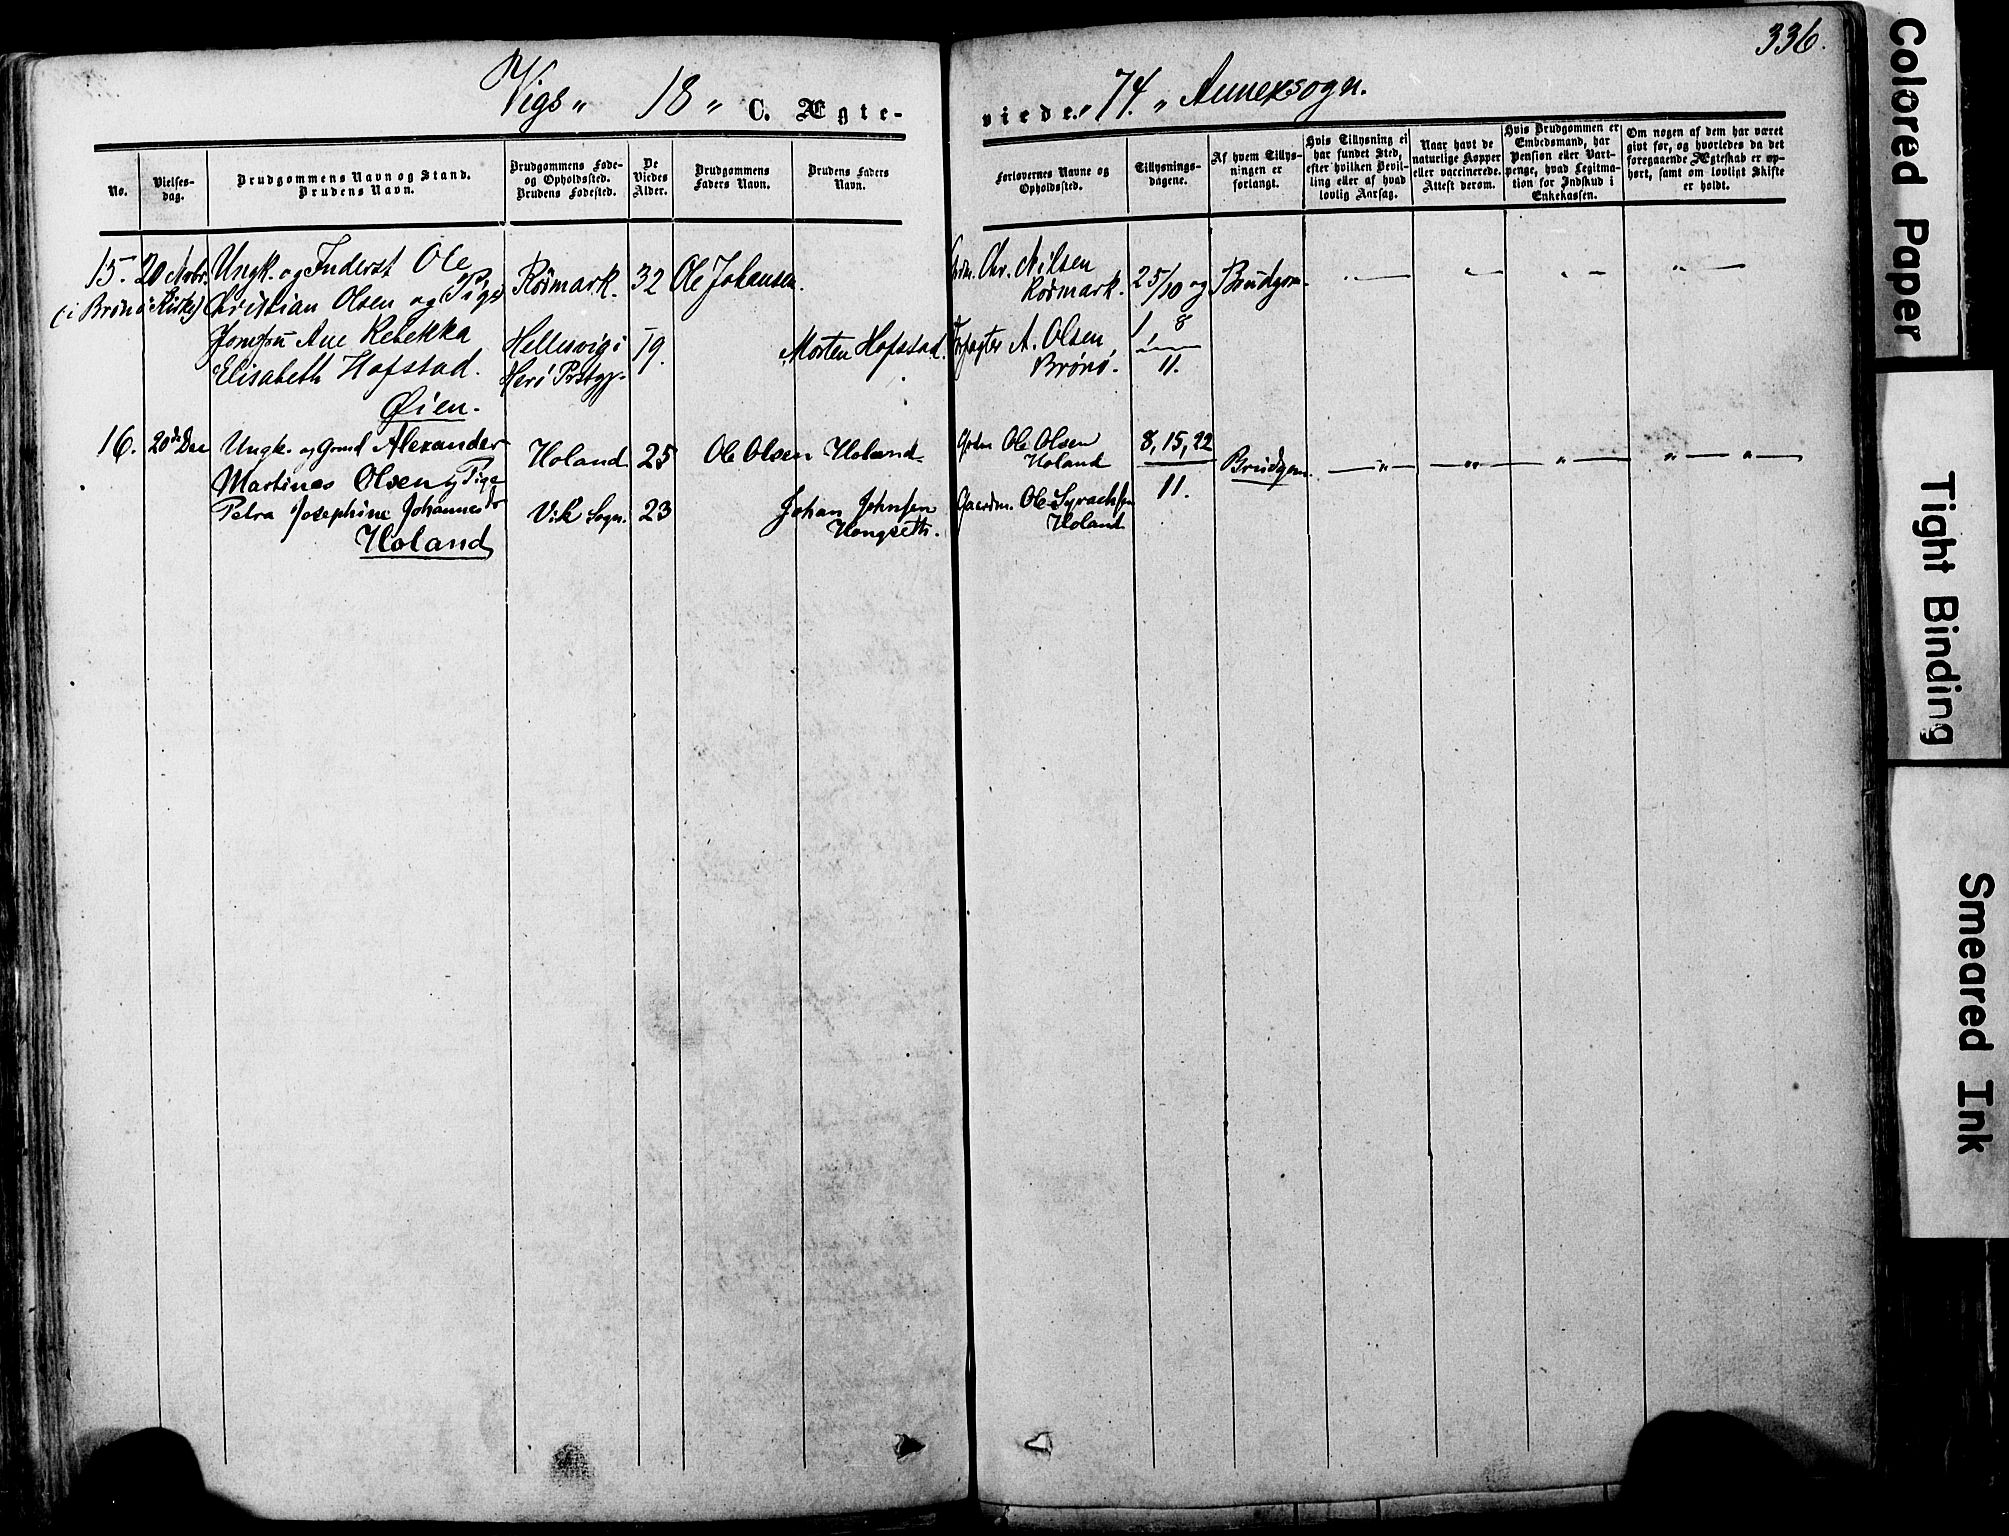 336.
Vigs „ 18 „ C. Ægte-
viede. „ 74. „ Annexsogn.
No.
Vielses-
dag.
Brudgommens Navn og Stand.
Brudens Navn.
Brudgommens Føde-
og Opholdssted.
Brudens Fødested.
De
Viedes
Alder.
Brudgommens
Faders Navn.
Brudens Faders
Navn.
Forlovernes Navne og
Opholdssted.
Tillysnings-
dagene.
Af hvem Tillys-
ningen er
forlangt.
Hvis Tillysning ei
har fundet Sted,
efter hvilken Bevil-
ling eller af hvad
lovlig Aarsag.
Naar havt de
naturlige Kopper
eller vaccinerede.
Attest derom.
Hvis Brudgommen er
Embedsmand, har
Pension eller Vart-
penge, hvad Legitima-
tion for Indskud i
Enkekassen.
Om nogen af dem har været
givt før, og hvorledes da det
foregaaende Ægteskab er op-
hørt, samt om lovligt Skifte
er holdt.
15. 20 Novbr.
(i Brønø Kirke)
Ungk. og Inderst Ole
Christian Olsen og Pige
Jomfru Ane Rebekka
Elisabeth Hofstad.
Øien.
Rødmark.
Hellesvig i
Herø Prstgj.
32
19.
Ole Johansen.
Morten Hofstad.
Chr. Nilsen
Rødmark.
A. Olsen,
Brønø.
25/10 og
1, 8
11.
Brudgom.
16. 20de Dec
Ungk. og Gmd Alexander
Martinus Olsen og Pige
Petra Josephine Johannesdr
Holand
Holand
Vik Sogn.
25
23
Ole Olsen Holand
Johan Johnsen
Hongseth.
Grdm Ole Olsen
Holand
Gaardm. Ole Syrachsen
Holand
8, 15, 22
11.
Brudgom.
Colored Paper
Tight Binding
Smeared Ink